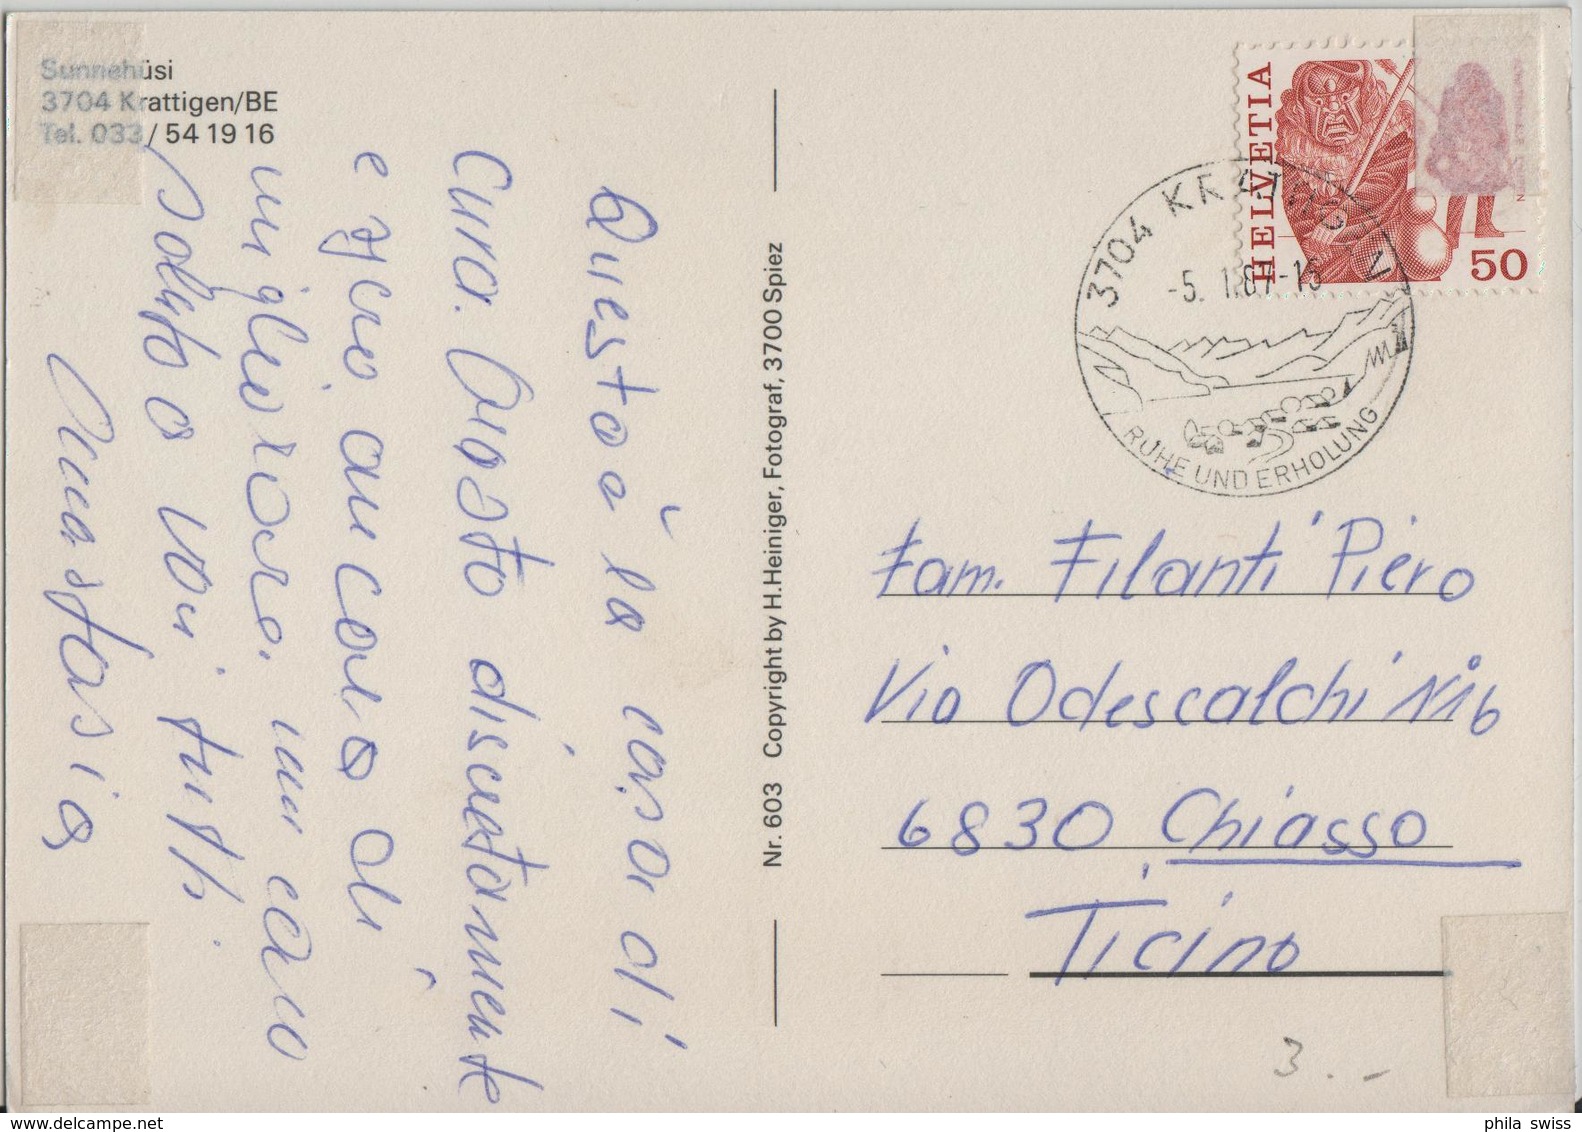 Sunnehüsi
3704 Krattigen/BE
Tel. 033 / 54 19 16
Questa è la casa di
Cura. Andato discretamente
e spero ancora di
migliorare. un caro
saluto a voi tutti
Anastasia
Nr. 603 Copyright by H. Heiniger, Fotograf, 3700 Spiez
HELVETIA
50
3704 KRATTIGEN
-5. 1.87-15
RUHE UND ERHOLUNG
Fam. Filanti Piero
Via Odescalchi N° 16
6830 Chiasso
Ticino
3.-
phila swiss